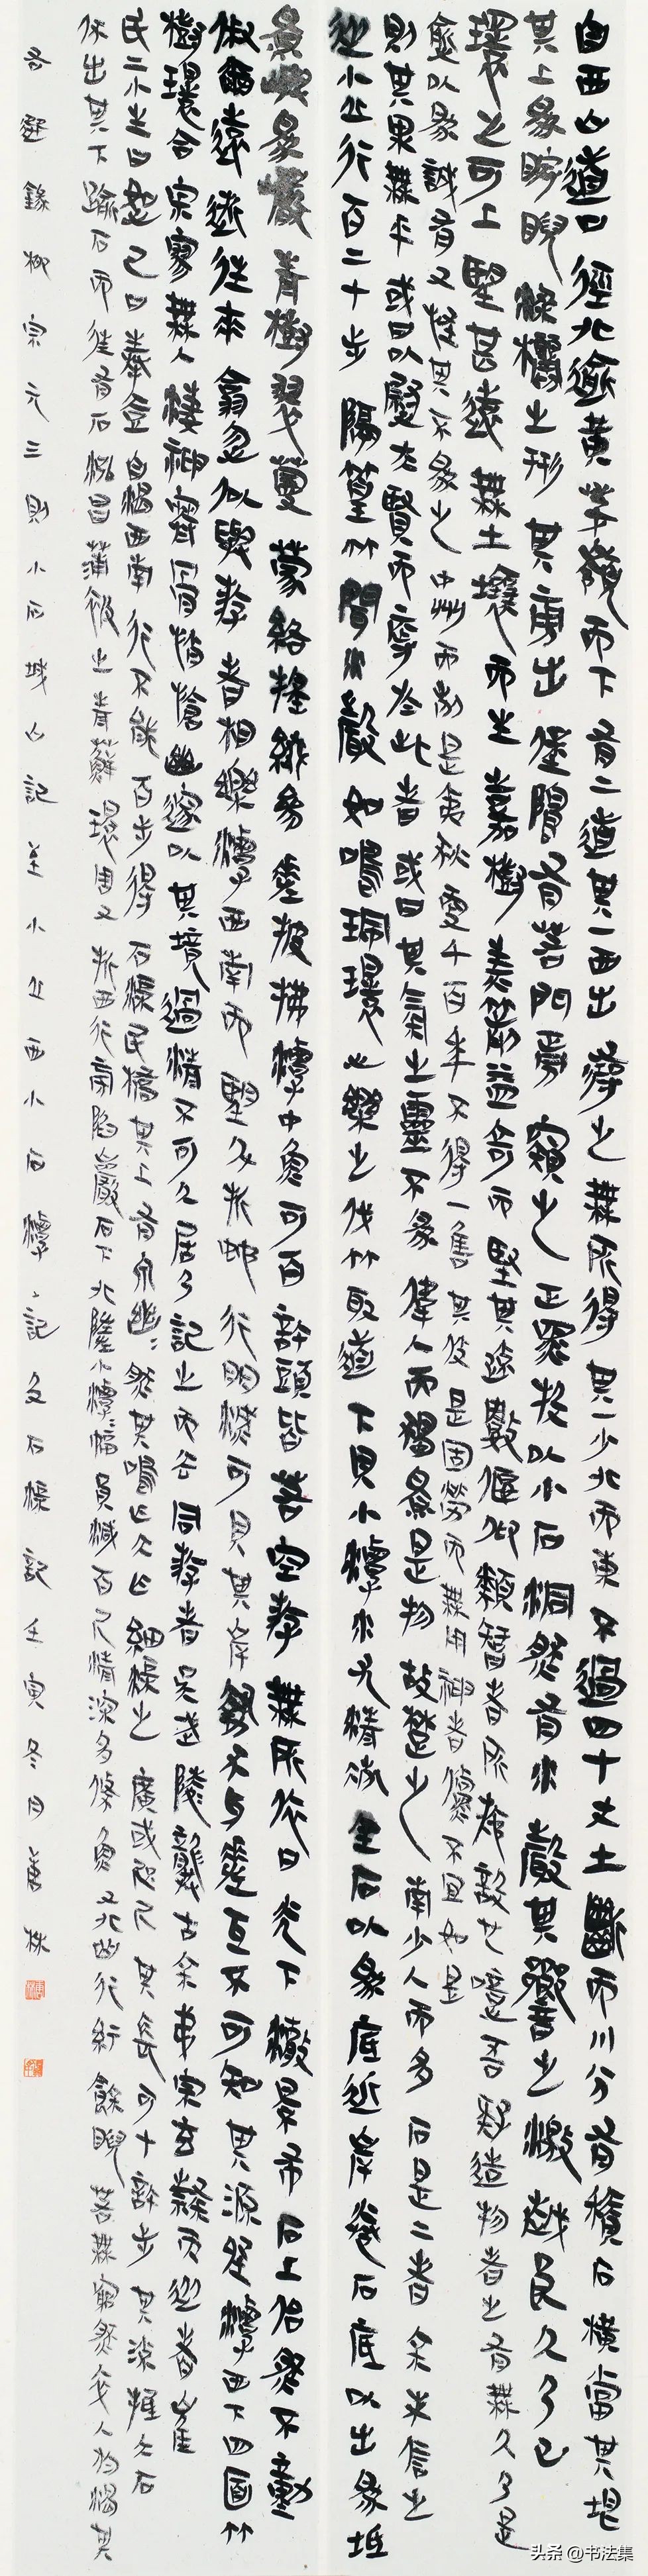 自西山道口徑北逾黃茅嶺而下有二道其一西出尋之無所得其一少北而東不過四十丈土斷而川分有積石橫當其垠
其上爲睥睨梁欐之形其旁出堡塢有若門焉窺之正黑投以小石洞然有水聲其響之激越良久乃已
環之可上望甚遠無土壤而生嘉樹美箭益奇而堅其疏數偃仰類智者所施設也噫吾疑造物者之有無久乃是
愈以爲誠有又怪其不爲之中州而列是夷狄更千百年不得一售其伎是固勞而無用神者儻不宜如是
則其果無乎或曰以慰夫賢而辱於此者或曰其氣之靈不爲偉人而獨爲是物故楚之南少人而多石是二者余未信之
從小丘行百二十步隔篁竹聞水聲如鳴珮環心樂之伐竹取道下見小潭水尤清冽全石以爲底近岸卷石底以出爲坻
爲嶼爲巖青樹翠蔓蒙絡搖綴參差披拂潭中魚可百許頭皆若空游無所依日光下澈影布石上佁然不動
俶爾遠逝往來翕忽似與游者相樂潭西南而望斗折蛇行明滅可見其岸勢犬牙差互不可知其源坐潭西下四面竹
樹環合寂寥無人悽神寒骨悄愴幽邃以其境過清不可久居乃記之而去同游者吳武陵龔古余弟宗玄隸而從者崔
氏二小生曰恕己曰奉壹自渴西南行不能百步得石渠民橋其上有泉幽幽然其鳴乍大乍細渠之廣或咫尺其長可十許步其流抵大石
伏出其下踰石而往有石泓昌蒲被之青蘚環周又折西行旁陷巖石下北墮小潭潭幅員減百尺清深多鯈魚又北曲行紆餘睨若無窮然卒入於渴其
右選錄柳宗元三則小石城山記至小丘西小石潭記及石渠記壬寅冬月
头条@书法集